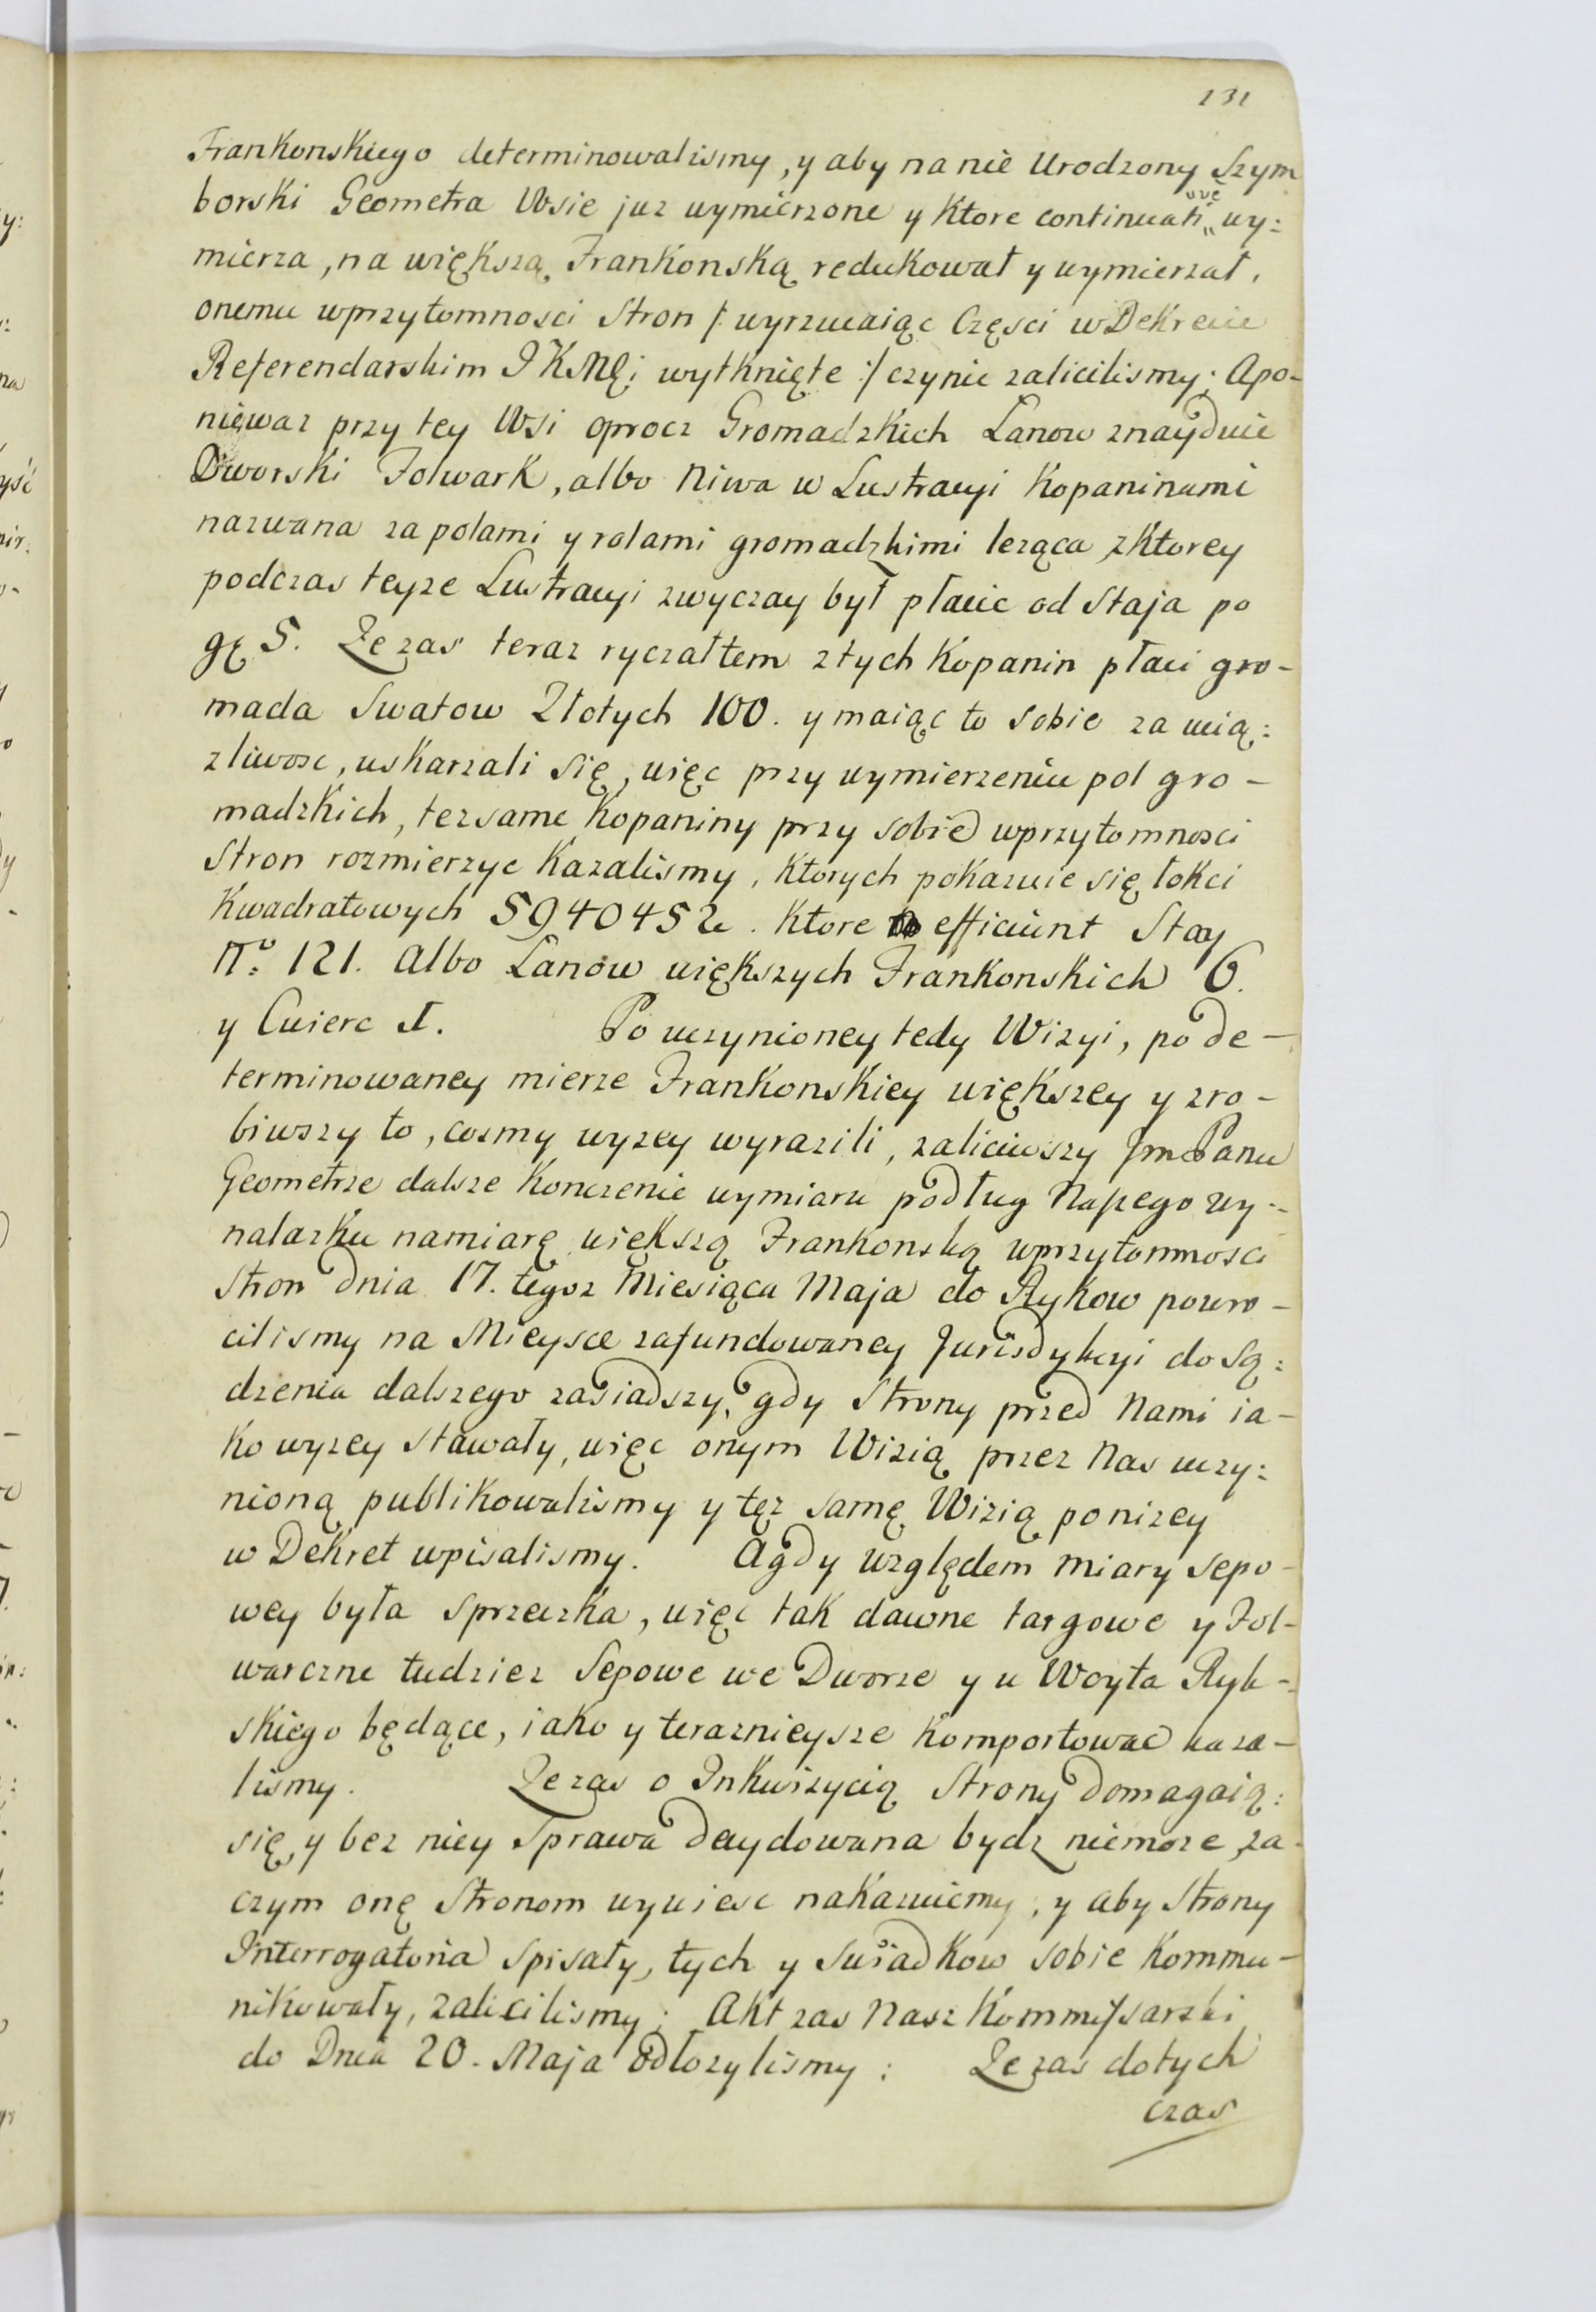 131
Frankonskiego determinowalismy, y aby na nie Urodzony Szym
borski Geometra Wsie juz wymierzone y Ktore continuati„vvè wy:
mierza, na większą Frankonską redukował y wymierzał,
onemu wprzytomnosci Stron /: wyrzucaiąc Częsci w Dekrecie
Referendarskim JKMCi wytknięte :/ czynic zalicilismy; Apo-
niewaz przy tey Wsi oprocz Gromadzkich Lanow znayduie
Dworski Folwark, albo Niwa w Lustracyi Kopaninami
nazwana za polami y rolami gromadzkimi leząca zKtorey
podczas teyze Lustracyi zwyczay był płacic od Staja po
gę 5. Ze zas teraz ryczałtem ztych Kopanin płaci gro-
mada Swatow Złotych 100. y maiąc to sobie za uią:
zliwosc, uskarzali się, więc przy wymierzeniu pol gro-
madzkich, tezsame Kopaniny przy sobie wprzytomnosci
Stron rozmierzyc Kazalismy, Ktorych pokazuie się łokci
Kwadratowych 5940452. Ktore efficiunt Stay
No: 121. albo Lanow większych Frankonskich 6.
y Cwierc 1. Po uczynioney tedy Wizyi, po de-
terminowaney mierze Frankonskiey większey y zro-
biwszy to, cosmy wyzey wyrazili, zaliciwszy Jmc Panu
Geometrze dalsze Konczenie wymiaru podług Naszego wy-
nalazku namiarę większą Frankonską wprzytomnosci
Stron dnia 17. tegoz Miesiąca Maja do Rykow powro-
cilismy na Mieysce zafundowaney Jurisdykcyi do Są:
dzenia dalszego zasiadszy, gdy Strony przed Nami ia-
ko wyzey stawały, więc onym Wizią przez Nas uczy:
nioną publikowalismy y tęz samę Wizią ponizey
w Dekret wpisalismy. A gdy względem miary sepo-
wey była sprzeczka, więc tak dawne targowe y Fol-
warczne tudziez Sepowe we Dworze y u Woyta Ryk-
skiego będące, iako y teraznieysze Komportowac kaza-
lismy. Ze zas o Inkwizycią Strony domagaią:
się, y bez niey Sprawa decydowana bydz niemoze, za-
czym onę Stronom wywiesc nakazuiemy, y aby Strony
Interrogatoria spisały, tych y Swiadkow sobie Kommu-
nikowały, zalicilismy; Akt zas Nasz Kommissarski
do Dnia 20. Maja odłozylismy: Ze zas dotych
czas